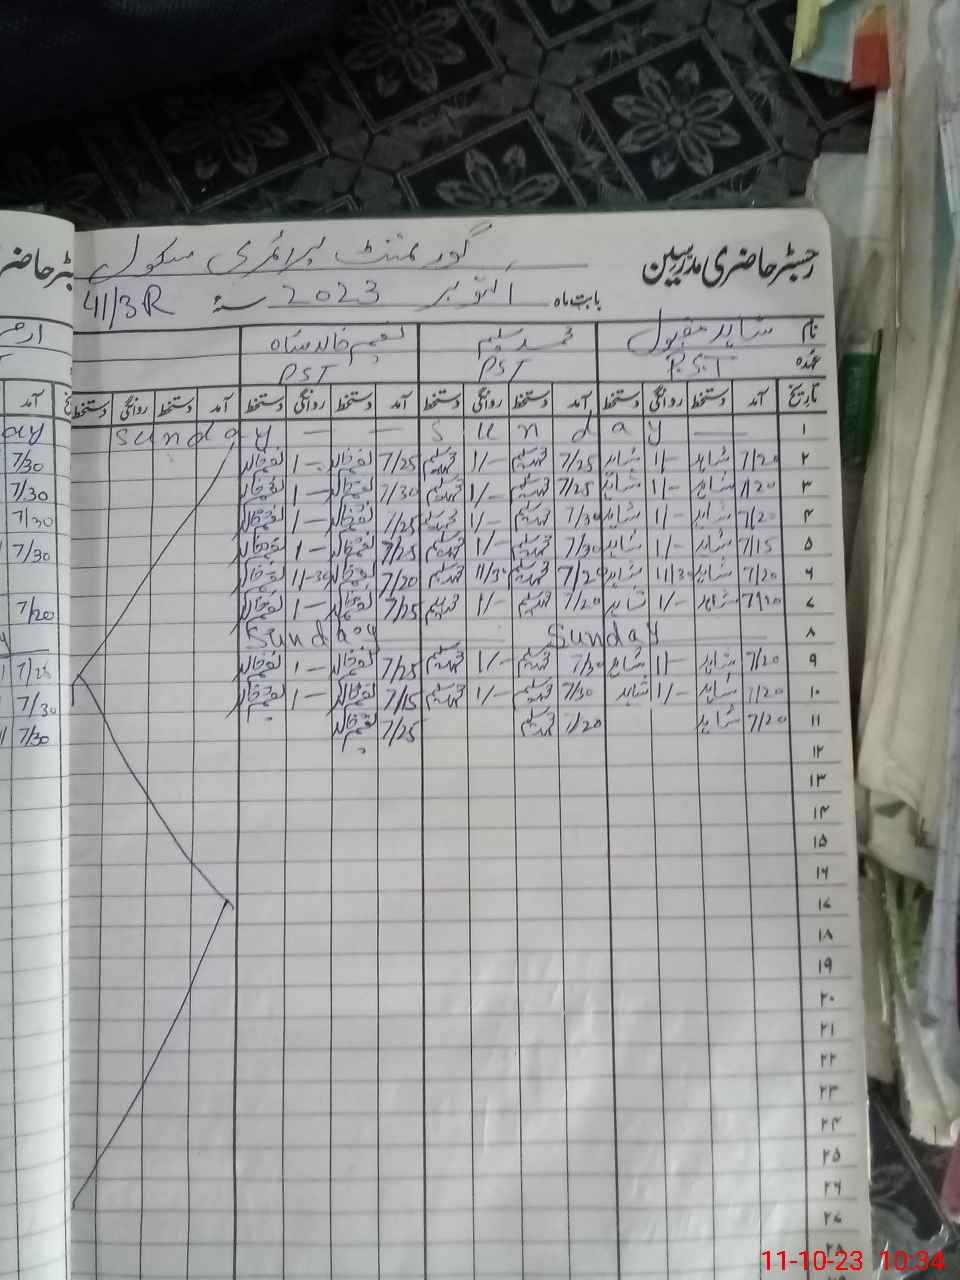 رجسٹر حاضری مدرسین گورنمنٹ پرائمری سکول
بابت ماہ اکتوبر 2023 سنہ 41/3R
نام شاہد مقبول محمد سلیم نعیم خالد شاہ
عہدہ P.S.T PST PST
تاریخ آمد دستخط روانگی دستخط آمد دستخط روانگی دستخط آمد دستخط روانگی دستخط آمد دستخط روانگی دستخط
۱ Sunday Sunday
۲ 7/20 شاہد 1/- شاہد 7/25 محمد سلیم 1/- محمد سلیم 7/25 نعیم خالد 1- نعیم خالد
۳ 7/20 شاہد 1/- شاہد 7/25 محمد سلیم 1/- محمد سلیم 7/30 نعیم خالد 1- نعیم خالد
۴ 7/20 شاہد 1/- شاہد 7/30 محمد سلیم 1/- محمد سلیم 7/25 نعیم خالد 1- نعیم خالد
۵ 7/15 شاہد 1/- شاہد 7/30 محمد سلیم 1/- محمد سلیم 7/25 نعیم خالد 1- نعیم خالد
۶ 7/20 شاہد 11/30 شاہد 7/20 محمد سلیم 11/30 محمد سلیم 7/20 نعیم خالد 11-30 نعیم خالد
۷ 7/20 شاہد 1/- شاہد 7/20 محمد سلیم 1/- محمد سلیم 7/25 نعیم خالد 1- نعیم خالد
۸ Sunday Sunday
۹ 7/20 شاہد 1/- شاہد 7/30 محمد سلیم 1/- محمد سلیم 7/25 نعیم خالد 1- نعیم خالد
۱۰ 7/20 شاہد 1/- شاہد 7/30 محمد سلیم 1/- محمد سلیم 7/15 نعیم خالد 1- نعیم خالد
۱۱ 7/20 شاہد 7/20 محمد سلیم 7/25 نعیم خالد
۱۲
۱۳
۱۴
۱۵
۱۶
۱۷
۱۸
۱۹
۲۰
۲۱
۲۲
۲۳
۲۴
۲۵
۲۶
۲۷
۲۸
آمد
ay
7/30
7/30
7/30
7/30
7/20
7/25
7/30
7/30
11-10-23 10:34